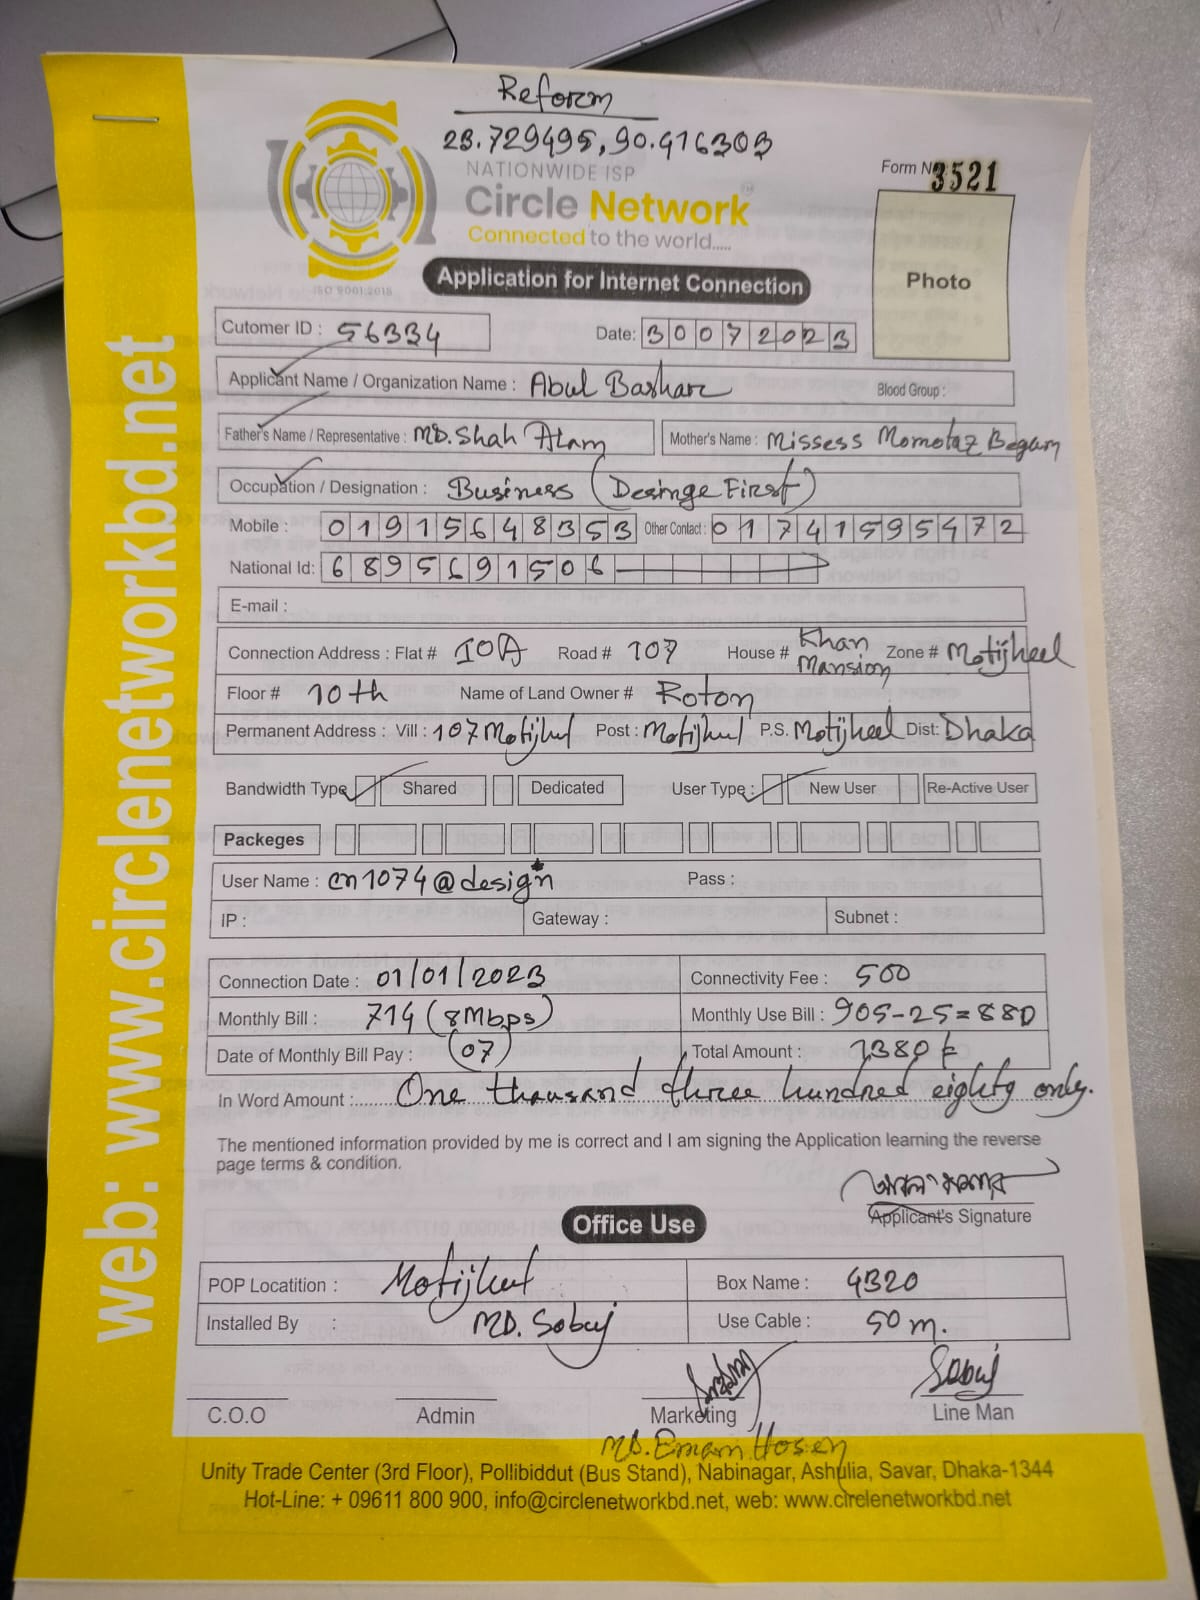 Reform
23.729495, 90.416303
NATIONWIDE ISP
Circle Network
Connected to the world.....
ISO 9001:2015
Form N 3521
Photo
Application for Internet Connection
Cutomer ID : 56334 Date: 30072023
Applicant Name / Organization Name : Abul Bashar Blood Group :
Father's Name / Representative : MD. Shah Alam Mother's Name : Missess Momotaz Begum
Occupation / Designation : Business (Desinge First)
Mobile : 01915648353 Other Contact : 01741595472
National Id: 6895691506
E-mail :
Connection Address : Flat # 10A Road # 107 House # Khan Mansion Zone # Motijheel
Floor # 10th Name of Land Owner # Roton
Permanent Address : Vill : 107 Motijhul Post : Motijhul P.S. Motijheel Dist: Dhaka
Bandwidth Type : Shared Dedicated User Type : New User Re-Active User
Packeges
User Name : cn1074@design Pass :
IP : Gateway : Subnet :
Connection Date : 01/01/2023 Connectivity Fee : 500
Monthly Bill : 714 (8Mbps) Monthly Use Bill : 905-25=880
Date of Monthly Bill Pay : (07) Total Amount : 1,380 t
In Word Amount :...... One thousand three hundred eighty only.
The mentioned information provided by me is correct and I am signing the Application learning the reverse
page terms & condition.
Applicant's Signature
Office Use
POP Locatition : Motijhul Box Name : 4320
Installed By : MD. Sobuj Use Cable : 50 m.
Sobuj
C.O.O Admin Marketing Line Man
MD. Emam Hosen
Unity Trade Center (3rd Floor), Pollibiddut (Bus Stand), Nabinagar, Ashulia, Savar, Dhaka-1344
Hot-Line: + 09611 800 900, info@circlenetworkbd.net, web: www.circlenetworkbd.net
web: www.circlenetworkbd.net